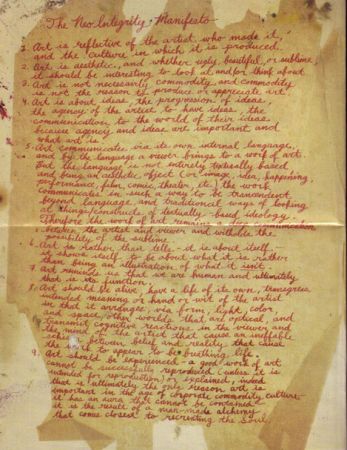 The Neo Integrity Manifesto
1. Art is reflective of the artist who made it,
and the culture in which it is produced.
2. Art is aesthetic, and whether ugly, beautiful, or sublime,
it should be interesting to look at and/or think about
3. Art is not necessarily commodity, and commodity
is not the reason to produce or appreciate art.
4. Art is about ideas, the progression of ideas,
the agency of the artist to have ideas, the
communication, to the world of their ideas
because agency and ideas are important and
what art is.
5. Art communicates via its own internal language,
and by the language a viewer brings to a work of art.
But the language is not entirely textually based,
and being an aesthetic object (or image, idea, happening
performance, film, comic, theater, etc) the work
communicates in such a way to be transcendent,
beyond language and traditional ways of looking
at things/constituted of textually-based ideology
Therefore the work of art remains a communication
between the artist and viewer and withholds the
possibility of the sublime.
6. Art shows rather than tells - it is about itself,
it shows itself to be about what it is rather
than being an allegation of what it isn't.
7. Art reminds us that we are human and ultimately
that is its function.
8. Art should be alive, have a life of its own, transgress
intended meaning or hand or wit of the artist
in that it arranges, via form, light, color,
and space, other worlds that are optical, and
transmit cognitive reactions in the viewer and
the mind of the artist that cause an ineffable
between belief and reality, that causes
the work to appear to be breathing, life.
9. Art should be experienced - a good work of art
cannot be successfully reproduced (unless it is
intended for reproduction) or explained, indeed
that is ultimately the only reason art is
important in the age of corporate commodity culture.
it has an aura that cannot be contained,
it is the result of a man-made alchemy
that comes closest to recreating the soul